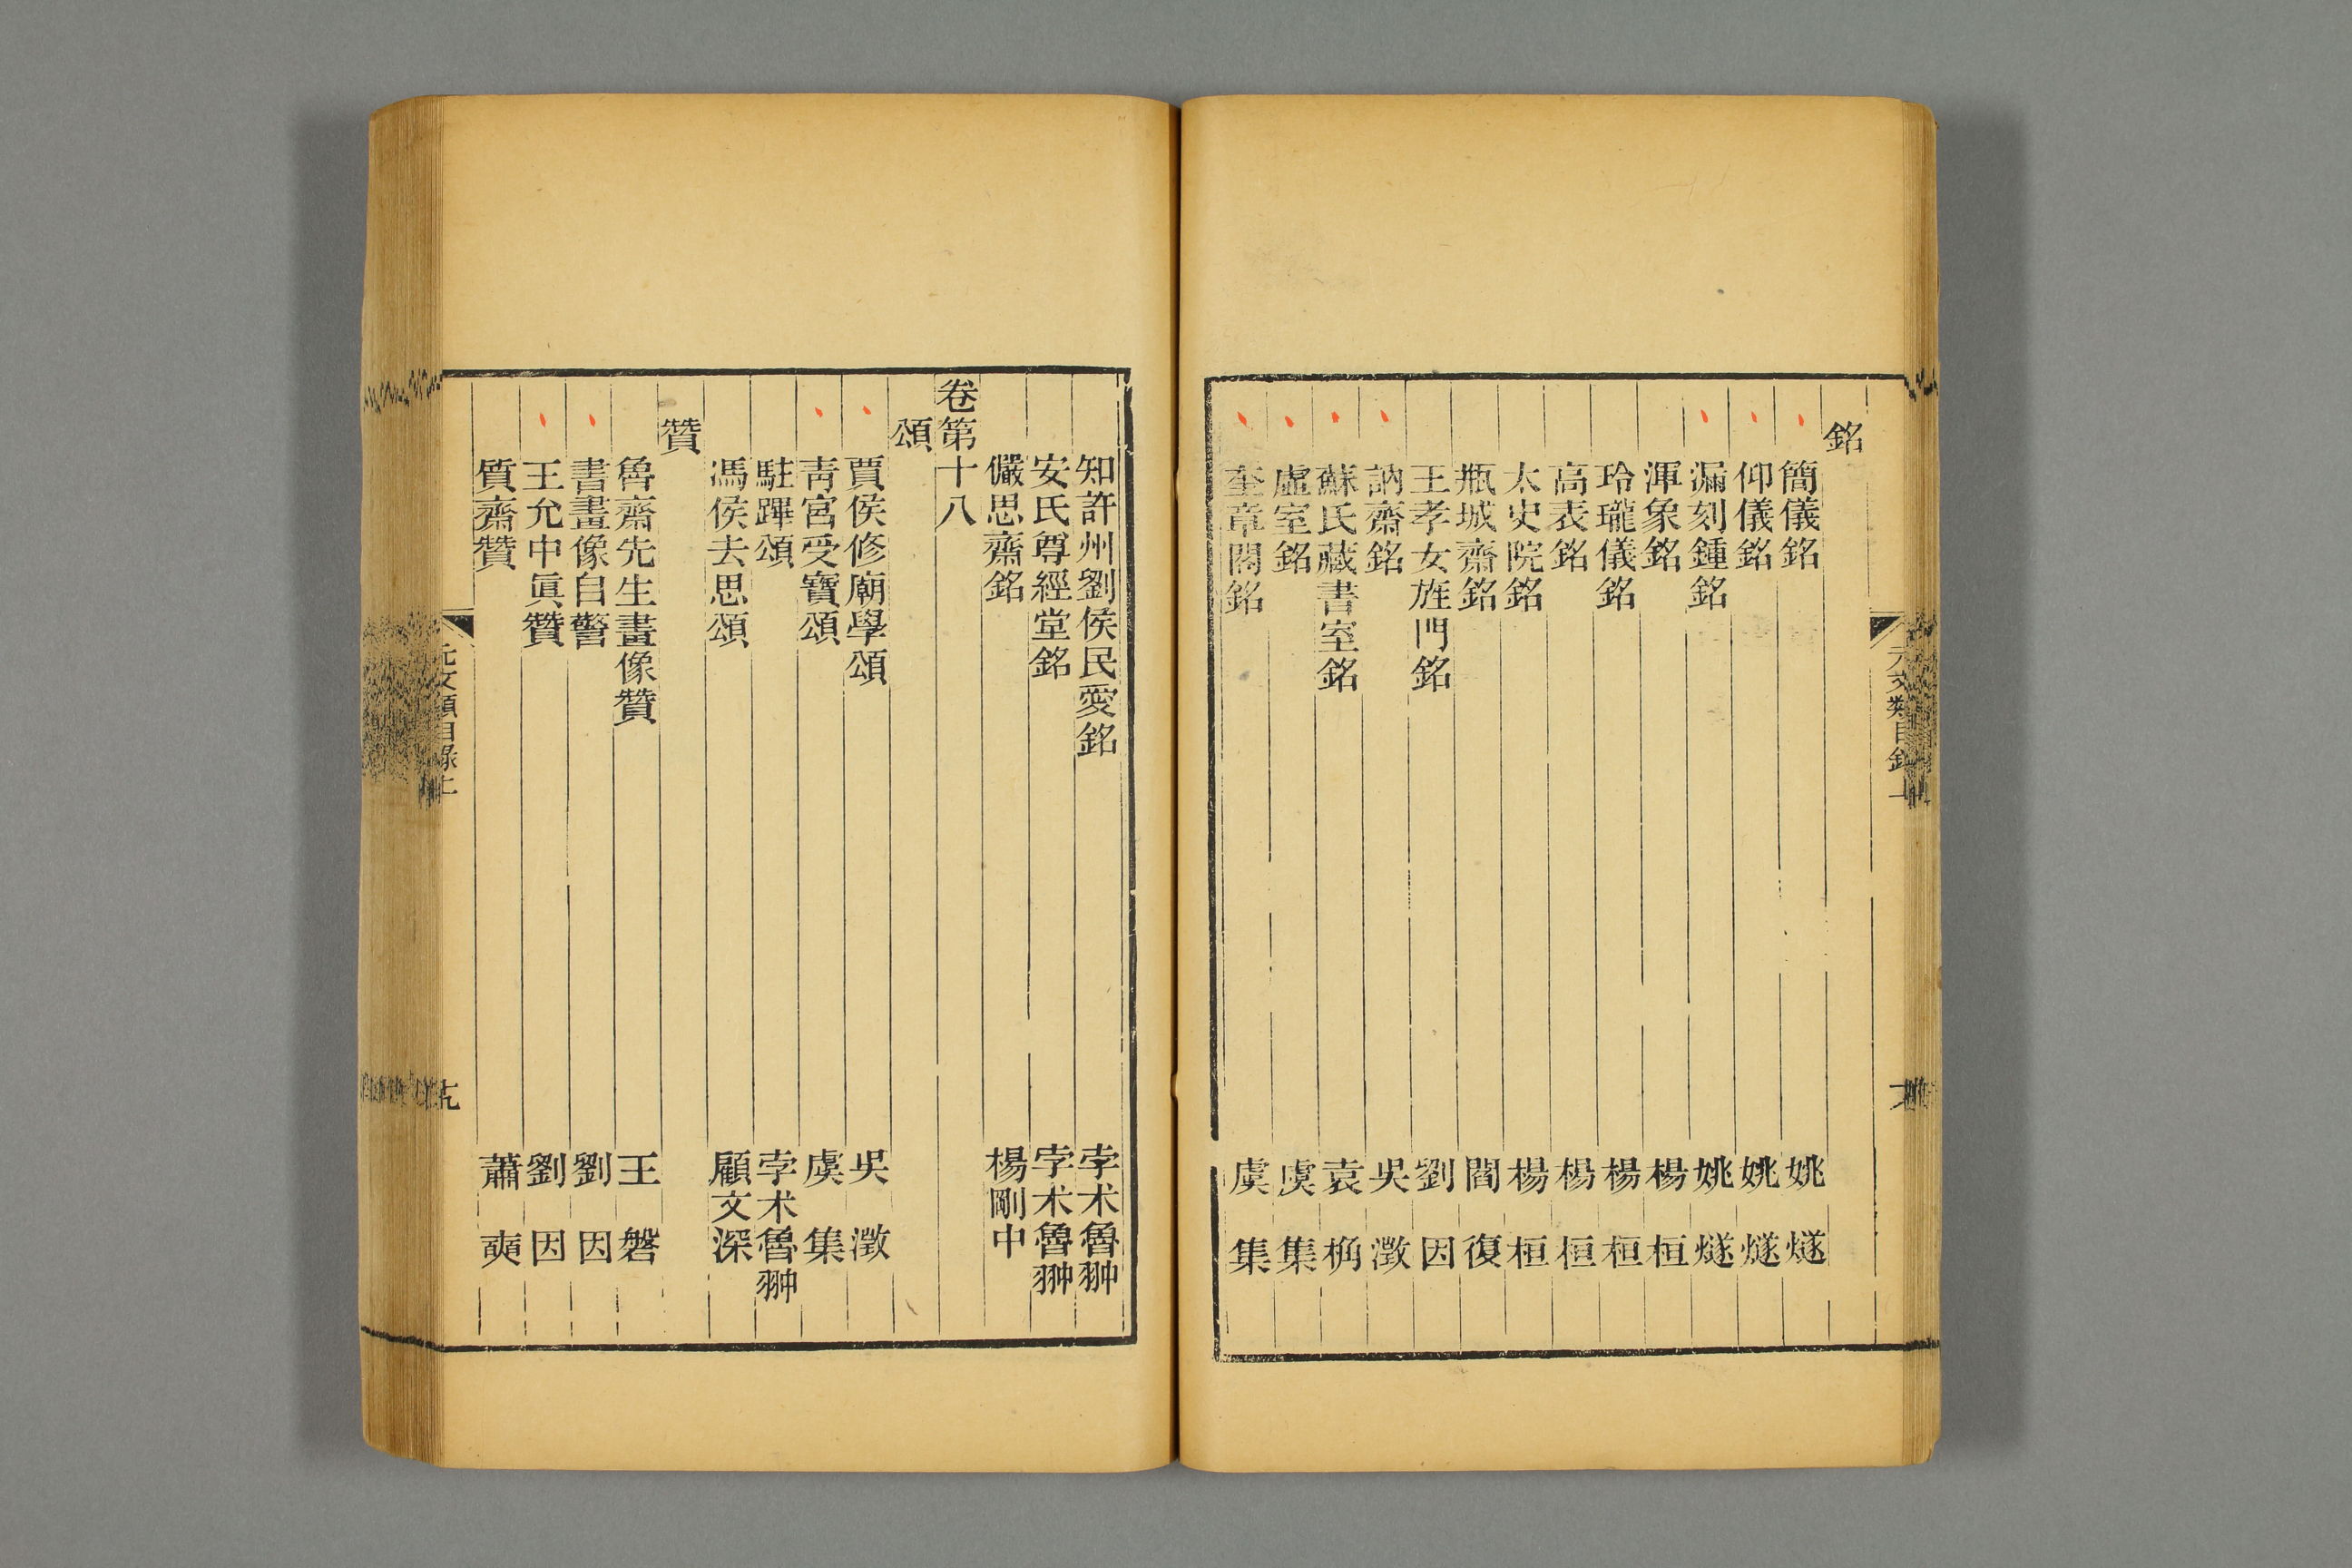 銘
簡儀銘 姚燧
仰儀銘 姚燧
漏刻鍾銘 姚燧
渾象銘 楊桓
玲瓏儀銘 楊桓
高表銘 楊桓
太史院銘 楊桓
瓶城齋銘 閻復
王孝女旌門銘 劉因
訥齋銘 吳澂
蘇氏藏書室銘 袁桷
虛室銘 虞集
奎章閣銘 虞集
知許州劉侯民愛銘 孛术魯翀
安氏尊經堂銘 孛术魯翀
儼思齋銘 楊剛中
卷第十八
頌
賈侯修廟學頌 吳澂
靑宮受寶頌 虞集
駐蹕頌 孛术魯翀
馮侯去思頌 顧文深
贊
魯齋先生畫像贊 王磐
書畫像自警 劉因
王允中眞贊 劉因
質齋贊 蕭𣂏
元文類目錄上